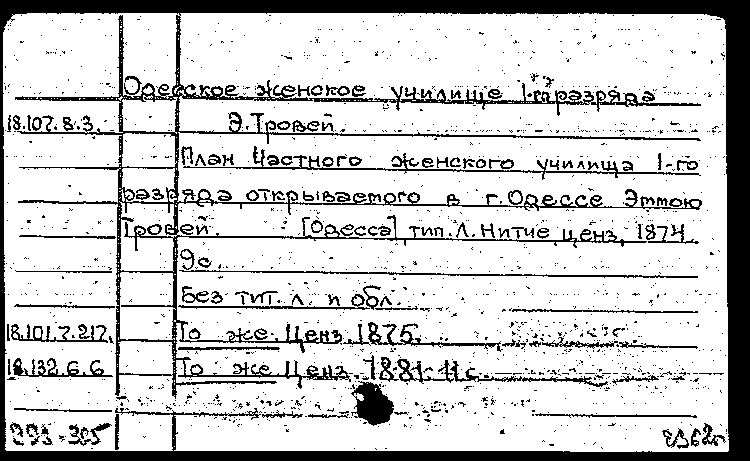 Одесское женское училище 1-го разряда
18.107.8.3. Э. Тровей.
План Частного женского училища 1-го
разряда, открываемого в г. Одессе Эммою
Тровей. [Одесса], тип. Л. Нитче, ценз. 1874.
9с.
Без тит. л. и обл.
18.101.7.217. То же. Ценз. 1875.
18.132.6.6 То же. Ценз. 1881. 11 с.
293-385